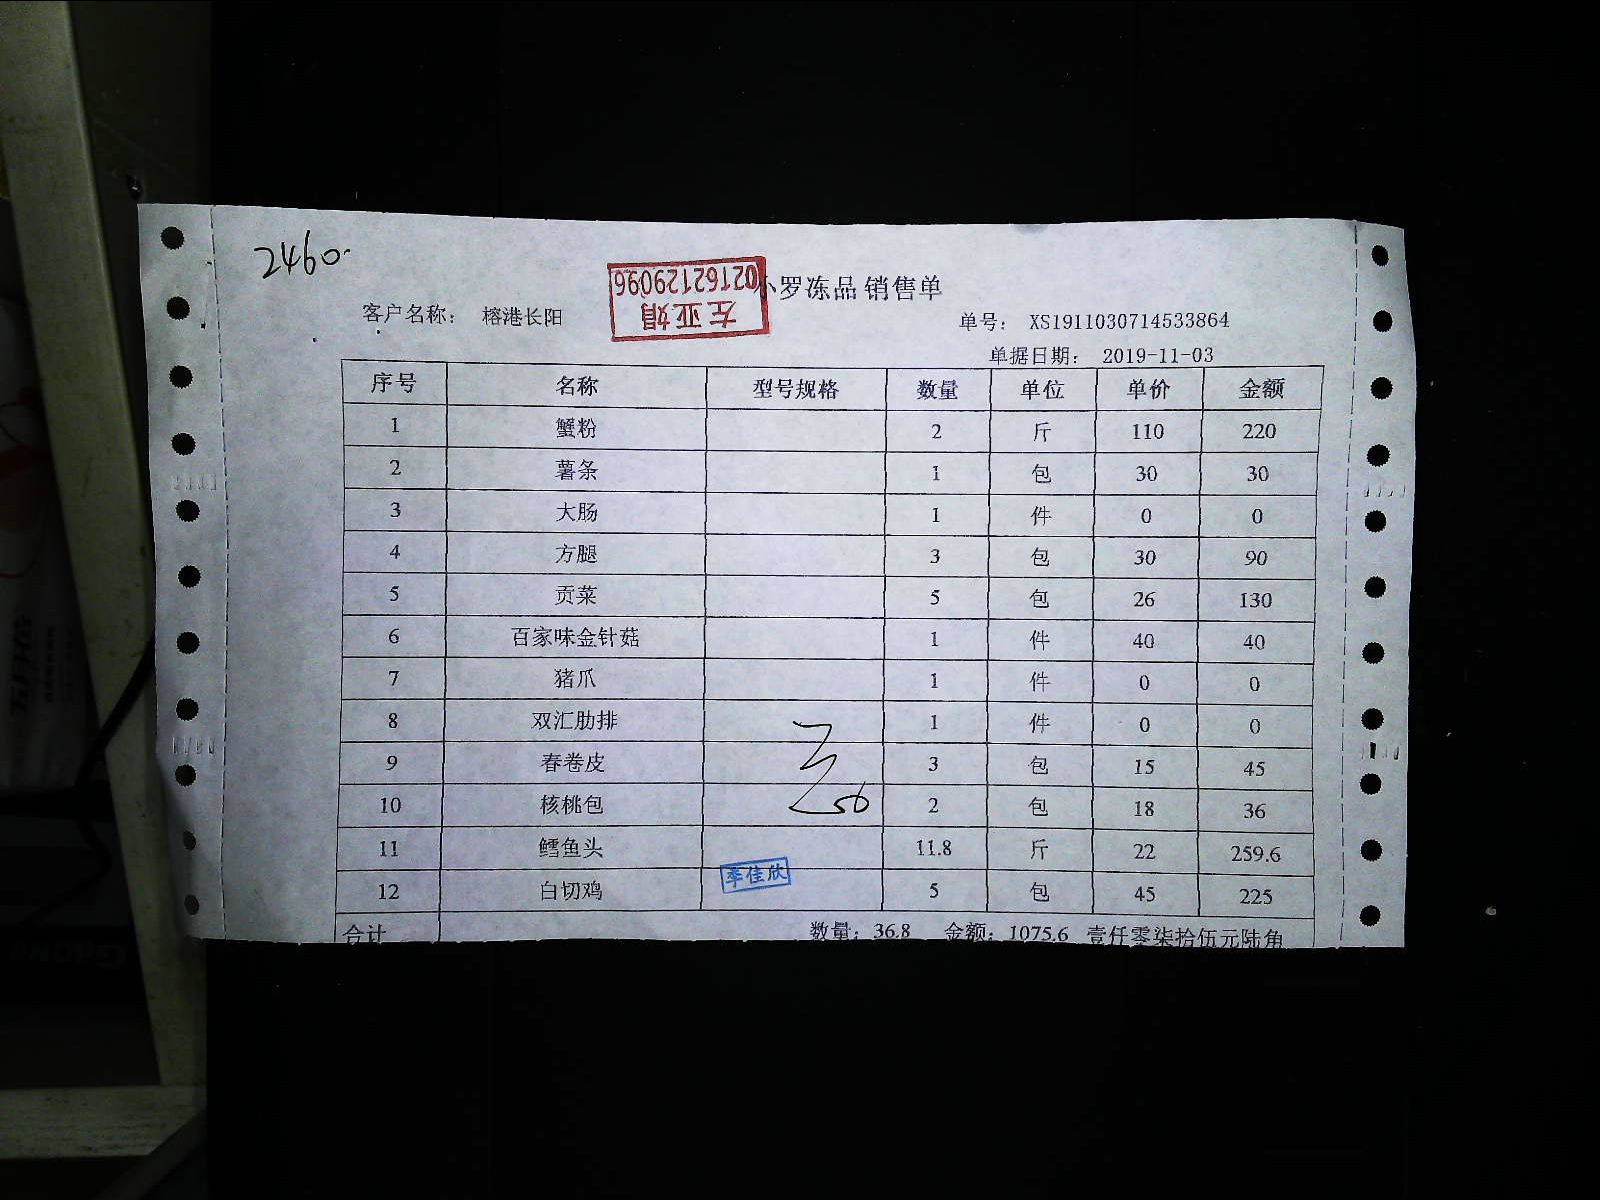 2460.
小罗冻品 销售单
02162129096
左亚娟
客户名称： 榕港长阳
单号： XS1911030714533864
单据日期： 2019-11-03
序号 名称 型号规格 数量 单位 单价 金额
1 蟹粉 2 斤 110 220
2 薯条 1 包 30 30
3 大肠 1 件 0 0
4 方腿 3 包 30 90
5 贡菜 5 包 26 130
6 百家味金针菇 1 件 40 40
7 猪爪 1 件 0 0
8 双汇肋排 1 件 0 0
9 春卷皮 3 包 15 45
10 核桃包 2 包 18 36
11 鳕鱼头 11.8 斤 22 259.6
12 白切鸡 5 包 45 225
李佳欣
合计 数量： 36.8 金额： 1075.6 壹仟零柒拾伍元陆角